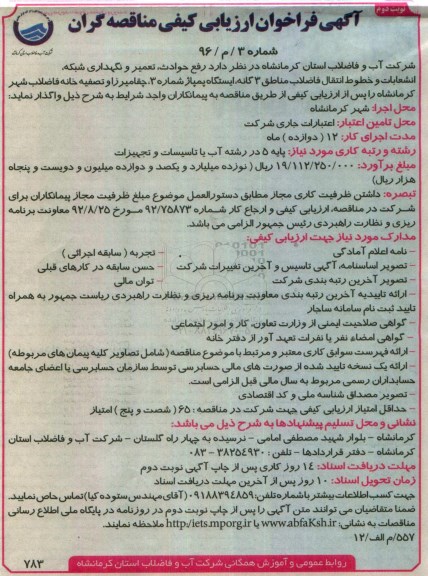 نوبت دوم
آگهی فراخوان ارزیابی کیفی مناقصه گران
شماره ۳ / م / ۹۶
شرکت آب و فاضلاب استان کرمانشاه در نظر دارد رفع حوادث، تعمیر و نگهداری شبکه،
انشعابات و خطوط انتقال فاضلاب مناطق ۳ گانه، ایستگاه پمپاژ شماره ۳، چقامیرزا و تصفیه خانه فاضلاب شهر
کرمانشاه را پس از ارزیابی کیفی از طریق مناقصه به پیمانکاران واجد شرایط به شرح ذیل واگذار نماید:
محل اجرا: شهر کرمانشاه
محل تامین اعتبار: اعتبارات جاری شرکت
مدت اجرای کار: ۱۲ ( دوازده ) ماه
رشته و رتبه کاری مورد نیاز: پایه ۵ در رشته آب یا تاسیسات و تجهیزات
مبلغ برآورد: ۱۹/۱۱۲/۲۵۰/۰۰۰ ریال ( نوزده میلیارد و یکصد و دوازده میلیون و دویست و پنجاه
هزار ریال)
تبصره: داشتن ظرفیت کاری مجاز مطابق دستورالعمل موضوع مبلغ ظرفیت مجاز پیمانکاران برای
شرکت در مناقصه، ارزیابی کیفی و ارجاع کار شماره ۹۲/۷۵۸۷۳ مورخ ۹۲/۸/۲۵ معاونت برنامه
ریزی و نظارت راهبردی رئیس جمهور الزامی می باشد.
مدارک مورد نیاز جهت ارزیابی کیفی:
– نامه اعلام آمادگی – تجربه ( سابقه اجرائی )
– تصویر اساسنامه، آگهی تاسیس و آخرین تغییرات شرکت – حسن سابقه در کارهای قبلی
– تصویر آخرین رتبه بندی شرکت – توان مالی
– ارائه تاییدیه آخرین رتبه بندی معاونت برنامه ریزی و نظارت راهبردی ریاست جمهور به همراه
تایید ثبت نام سامانه ساجار
– گواهی صلاحیت ایمنی از وزارت تعاون، کار و امور اجتماعی
– گواهی امضاء نفر یا نفرات تعهد آور از دفتر خانه
– ارائه فهرست سوابق کاری معتبر و مرتبط با موضوع مناقصه ( شامل تصاویر کلیه پیمان های مربوطه)
– ارائه یک نسخه تایید شده از صورت های مالی حسابرسی توسط سازمان حسابرسی یا اعضای جامعه
حسابداران رسمی مربوط به سال مالی قبل الزامی است.
– تصویر مصداق شناسه ملی و کد اقتصادی
– حداقل امتیاز ارزیابی کیفی جهت شرکت در مناقصه : ۶۵ ( شصت و پنج ) امتیاز
نشانی و محل تسلیم پیشنهادها به شرح ذیل می باشد:
کرمانشاه – بلوار شهید مصطفی امامی – نرسیده به چهار راه گلستان – شرکت آب و فاضلاب استان
کرمانشاه – دفتر قراردادها – تلفن : ۳۸۲۵۴۹۳۰ – ۰۸۳
مهلت دریافت اسناد: ۱۴ روز کاری پس از چاپ آگهی نوبت دوم
زمان تحویل اسناد: ۱۰ روز پس از آخرین مهلت دریافت اسناد
جهت کسب اطلاعات بیشتر با شماره تلفن: ۰۹۱۸۸۳۹۴۸۵۹ (آقای مهندس ستوده کیا) تماس حاصل نمایید.
ضمنا متقاضیان می توانند متن آگهی را پس از چاپ نوبت دوم در روزنامه در پایگاه ملی اطلاع رسانی
مناقصات به نشانی: www.abfaKsh.ir یا http://iets.mporg.ir ملاحظه نمایند.
۵۵۷/م الف/۱۲
روابط عمومی و آموزش همگانی شرکت آب و فاضلاب استان کرمانشاه
۷۸۳